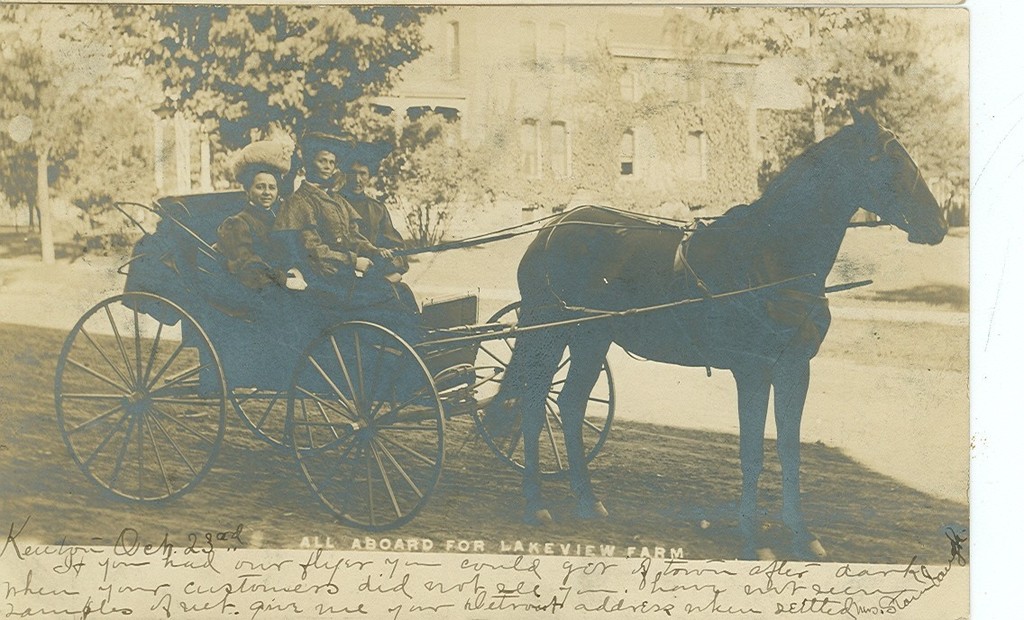 Kenton Oct. 23rd
ALL ABOARD FOR LAKEVIEW FARM
If you had our flyer you could go of town after dark
when your customers did not see you. I have not seen
samples of yet. give me your Detroit address when settled Mrs.